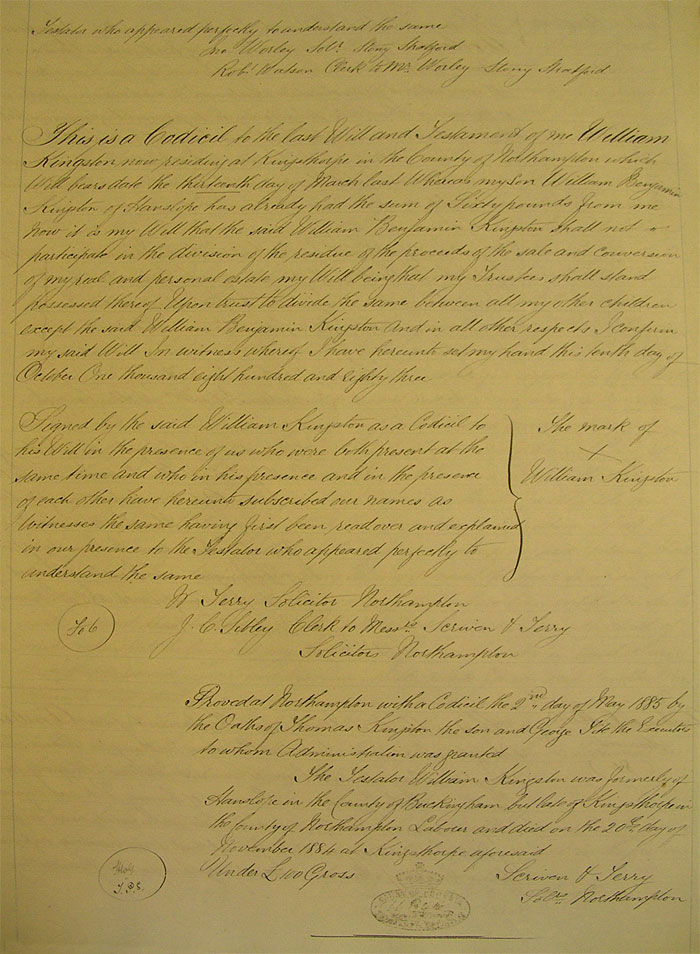 Testator who appeared perfectly to understand the same
Jno Worley Solr. Stony Stratford
Robt. Watson Clerk to Mr. Worley Stony Stratford
This is a Codicil to the last Will and Testament of me William
Kingston now residing at Kingsthorpe in the County of Northampton which
Will bears date the thirteenth day of March last Whereas my son William Benjamin
Kingston of Hanslope has already had the sum of Sixty pounds from me
Now it is my Will that the said William Benjamin Kingston shall not
participate in the division of the residue of the proceeds of the sale and conversion
of my real and personal estate my Will being that my Trustees shall stand
possessed thereof Upon trust to divide the same between all my other children
except the said William Benjamin Kingston and in all other respects I confirm
my said Will In witness whereof I have hereunto set my hand this tenth day of
October One thousand eight hundred and eighty three
Signed by the said William Kingston as a Codicil to
his Will in the presence of us who were both present at the
same time and who in his presence and in the presence
of each other have hereunto subscribed our names as
Witnesses the same having first been read over and explained
in our presence to the Testator who appeared perfectly to
understand the same
The mark of
X
William Kingston
W Terry Solicitor Northampton
J. C. Sibley Clerk to Messrs. Scriven & Terry
Solicitors Northampton
Fo 6
Proved at Northampton with a Codicil the 2nd day of May 1885 by
the Oaths of Thomas Kingston the son and George the Executors
to whom Administration was granted
The Testator William Kingston was formerly of
Hanslope in the County of Buckingham but late of Kingsthorpe in
the County of Northampton Labour and died on the 20th day of
November 1884 at Kingsthorpe aforesaid
Under £100 Gross
Scriven & Terry
Solrs. Northampton